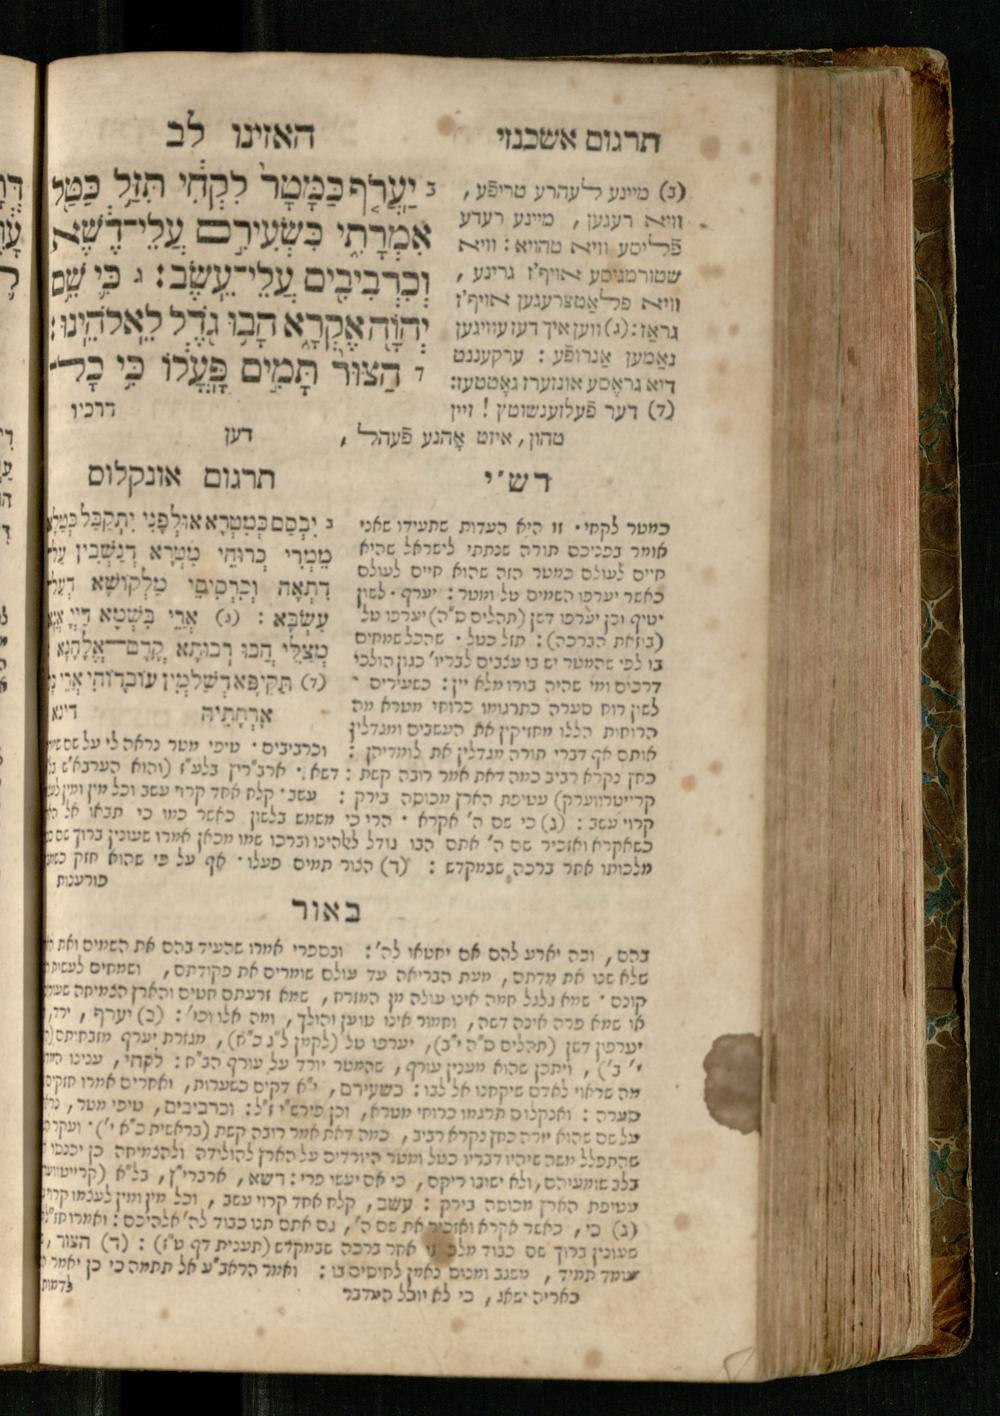 תרגום אשכנזי
האזינו לב
ב יַעֲרֹף כַּמָּטָר לִקְחִי תִּזַּל כַּטַּל
אִמְרָתִי כִּשְׂעִירִם עֲלֵי־דֶשֶׁא
וְכִרְבִיבִים עֲלֵי־עֵשֶׂב: ג כִּי שֵׁם
יְהוָה אֶקְרָא הָבוּ גֹדֶל לֵאלֹהֵינוּ:
ד הַצּוּר תָּמִים פָּעֳלוֹ כִּי כָל־
דרכיו
(ב) מיינע לעהרע טריפֿע,
וויא רעגען, מיינע רעדע
פֿליסע וויא טהויא: וויא
שטורמגיסע אויף'ז גרינע,
וויא פלאַטצרעגען אויף'ז
גראַז: (ג) ווען איך דעז עוויגען
נאָמען אַנרופֿע: ערקעננט
דיא גראָסע אונזערז גאָטטעז:
(ד) דער פֿעלזענשוטץ! זיין
טהון, איזט אָהנע פֿעהל,
דען
תרגום אונקלוס
ב יִבְסַם כְּמִטְרָא אוּלְפָנִי יִתְקַבַּל כְּטַלָּא
מֵמְרִי כְּרוּחֵי מִטְרָא דְּנַשְׁבִין עַל
דִּתְאָה וְכִרְסִיסֵי מַלְקוֹשָׁא דְּעַל
עִשְׂבָּא: (ג) אֲרֵי בִּשְׁמָא דַיְיָ אֲנָא
מְצַלֵּי הָבוּ רְבוּתָא קֳדָם אֱלָהָנָא
(ד) תַּקִּיפָא דְּשַׁלְמִין עוֹבָדוֹהִי אֲרֵי
אָרְחָתֵיהּ
דינא
רש"י
כמטר לקחי. זו היא העדות שתעידו שאני
אומר בפניכם תורה שנתתי לישראל שהיא
חיים לעולם כמטר הזה שהוא חיים לעולם
כאשר יערפו השמים טל ומטר: יערף. לשון
יטיף וכן יערפו דשן (תהלים ס"ה) יערפו טל
(בוזאת הברכה): תזל כטל. שהכל שמחים
בו לפי שהמטר יש בו עצבים לבריו' כגון הולכי
דרכים ומי שהיה בורו מלא יין: כשעירים
לשון רוח סערה כתרגומו כרוחי מטרא מה
הרוחות הללו מחזיקין את העשבים ומגדלין
אותם אף דברי תורה מגדלין את לומדיהן: וכרביבים. טיפי מטר נראה לי על שם
כחץ נקרא רביב כמה דאת אמר רובה קשת: דשא. ארב"ריץ בלע"ז (והוא הערבא"ש
קרייטרווערק) עטיפת הארץ מכוסה בירק: עשב. קלח אחד קרוי עשב וכל מין ומין
קרוי עשב: (ג) כי שם ה' אקרא. הרי כי משמש בלשון כאשר כמו כי תבאו אל
כשאקרא ואזכיר שם ה' אתם הבו גודל לאלהינו וברכו שמו מכאן אמרו שעונין ברוך שם
מלכותו אחר ברכה שבמקדש: (ד) הצור תמים פעלו. אף על פי שהוא חזק
פורענות
באור
בהם, ובה יארע להם אם יחטאו לה': ובספרי אמרו שהעיד בהם את השמים ואת
שלא שנו את מדתם, מעת הבריאה עד עולם שומרים את פקודתם, ושמחים לעשות
קונם. שמא גלגל חמה אינו עולה מן המזרח, שמא זרעתם חטים והארץ הצמיחה
או שמא פרה אינה דשה, וחמור אינו טוען והולך, ומה אלו וכו': (ב) יערף, ירד,
יערפון דשן (תהלים ס"ה י"ב), יערפו טל (לקמן ל"ג כ"ח), מגזרת יערף מזבחותם
י' ב'), ויתכן שהוא מענין עורף, שהמטר יורד על עורף הב"ח: לקחי, ענינו
מה שראוי לאדם שיקחנו אל לבו: כשעירם, י"א דקים כשערות, ואחרים אמרו
סערה: ואנקלוס תרגמו כרוחי מטרא, וכן פירש"י ז"ל: וכרביבים, טיפי מטר,
על שם שהוא יורה כחץ נקרא רביב, כמה דאת אמר רובה קשת (בראשית כ"א י'). ועקר
שהתפלל משה שיהיו דבריו כטל ומטר היורדים על הארץ להולידה ולהצמיחה כן יכנסו
בלב שומעיהם, ולא ישובו ריקם, כי אם יעשו פרי: דשא, ארברי"ץ, בל"א
עטיפת הארץ מכוסה בירק: עשב, קלח אחד קרוי עשב, וכל מין ומין לעצמו קרוי
(ג) כי, כאשר אקרא ואזכיר את שם ה', גם אתם תנו כבוד לה' אלהיכם: ואמרו
שעונין ברוך שם כבוד אחר ברכה שבמקדש (תענית דף ט"ז): (ד) הצור,
עומד תמיד, משגב ומנוס נאמן לחוסים בו: ואמר הראב"ע אל תתמה כי כן יאמר
כאריה ישאג, כי לא יוכל המדבר
לדמות